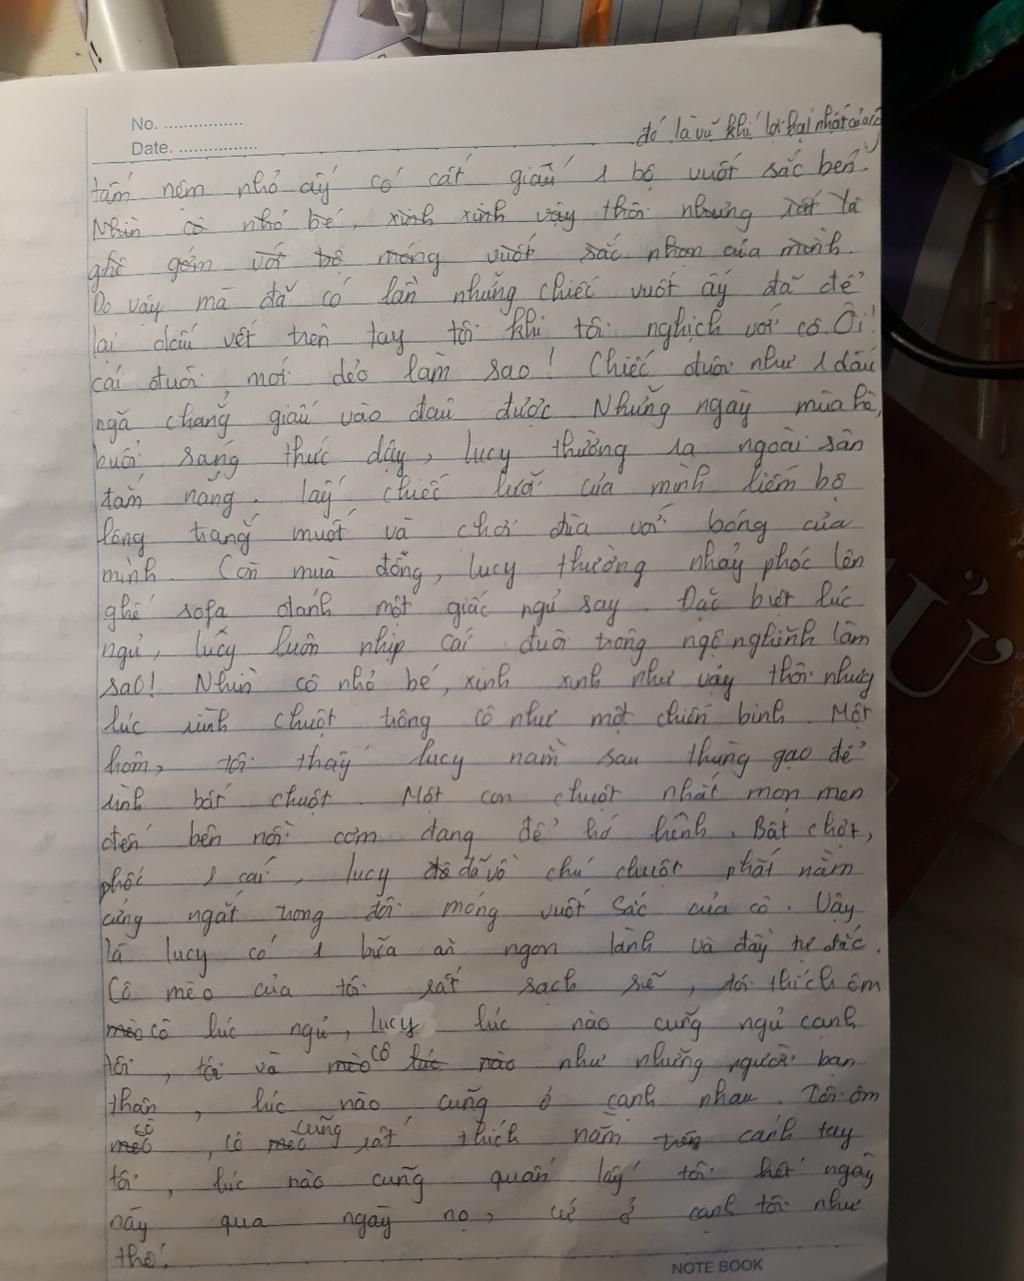 No. ................
đó là vũ khí lợi hại nhất của cô
Date. ................
tấm nệm nhỏ ấy có cất giấu 1 bộ vuốt sắc bén.
Nhìn cô nhỏ bé, xinh xinh vậy thôi nhưng rất là
ghê gớm với bộ móng vuốt sắc nhọn của mình.
Do vậy mà đã có lần những chiếc vuốt ấy đã để
lại dấu vết trên tay tôi khi tôi nghịch với cô. Ôi!
cái đuôi mới dẻo làm sao! Chiếc đuôi như 1 dấu
ngã chẳng giấu vào đâu được. Những ngày mùa hè,
buổi sáng thức dậy, lucy thường ra ngoài sân
tắm nắng. lấy chiếc lưỡi của mình liếm bộ
lông trắng muốt và chơi đùa với bóng của
mình. Còn mùa đông, lucy thường nhảy phóc lên
ghế sofa đánh một giấc ngủ say. Đặc biệt lúc
ngủ, lucy luôn nhịp cái đuôi trông ngộ nghĩnh làm
sao! Nhìn cô nhỏ bé, xinh xinh như vậy thôi nhưng
lúc rình chuột trông cô như một chiến binh. Một
hôm, tôi thấy lucy nằm sau thùng gạo để
rình bắt chuột. Một con chuột nhắt mon men
đến bên nồi cơm đang để hớ hênh. Bất chợt,
phốc 1 cái, lucy đã vồ chú chuột phải nằm
cứng ngắt trong đôi móng vuốt sắc của cô. Vậy
là lucy có 1 bữa ăn ngon lành và đầy tự đắc.
Cô mèo của tôi rất sạch sẽ, tôi thích ôm
mèo cô lúc ngủ, lucy lúc nào cũng ngủ cạnh
tôi, tôi và mèo cô lúc nào như những người bạn
thân, lúc nào cũng ở cạnh nhau. Tôi ôm
mèo cô, cô mèo cũng rất thích nằm trên cánh tay
tôi, lúc nào cũng quấn lấy tôi hết ngày
này qua ngày nọ, cứ ở cạnh tôi như
thế.
NOTE BOOK